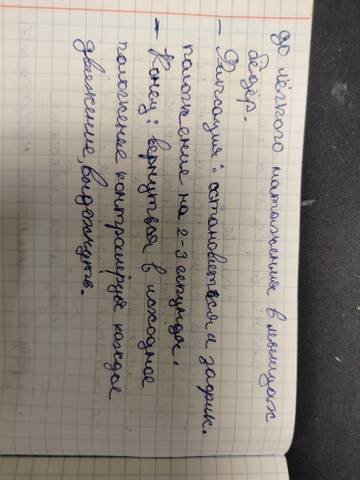 до лёгкого натяжения в мышцах
бедёр.
- Фиксация: остановиться и задрж.
положение на 2-3 секунды.
- Конец: вернуться в исходное
положение контролируя каждое
движение, выдохнуть.